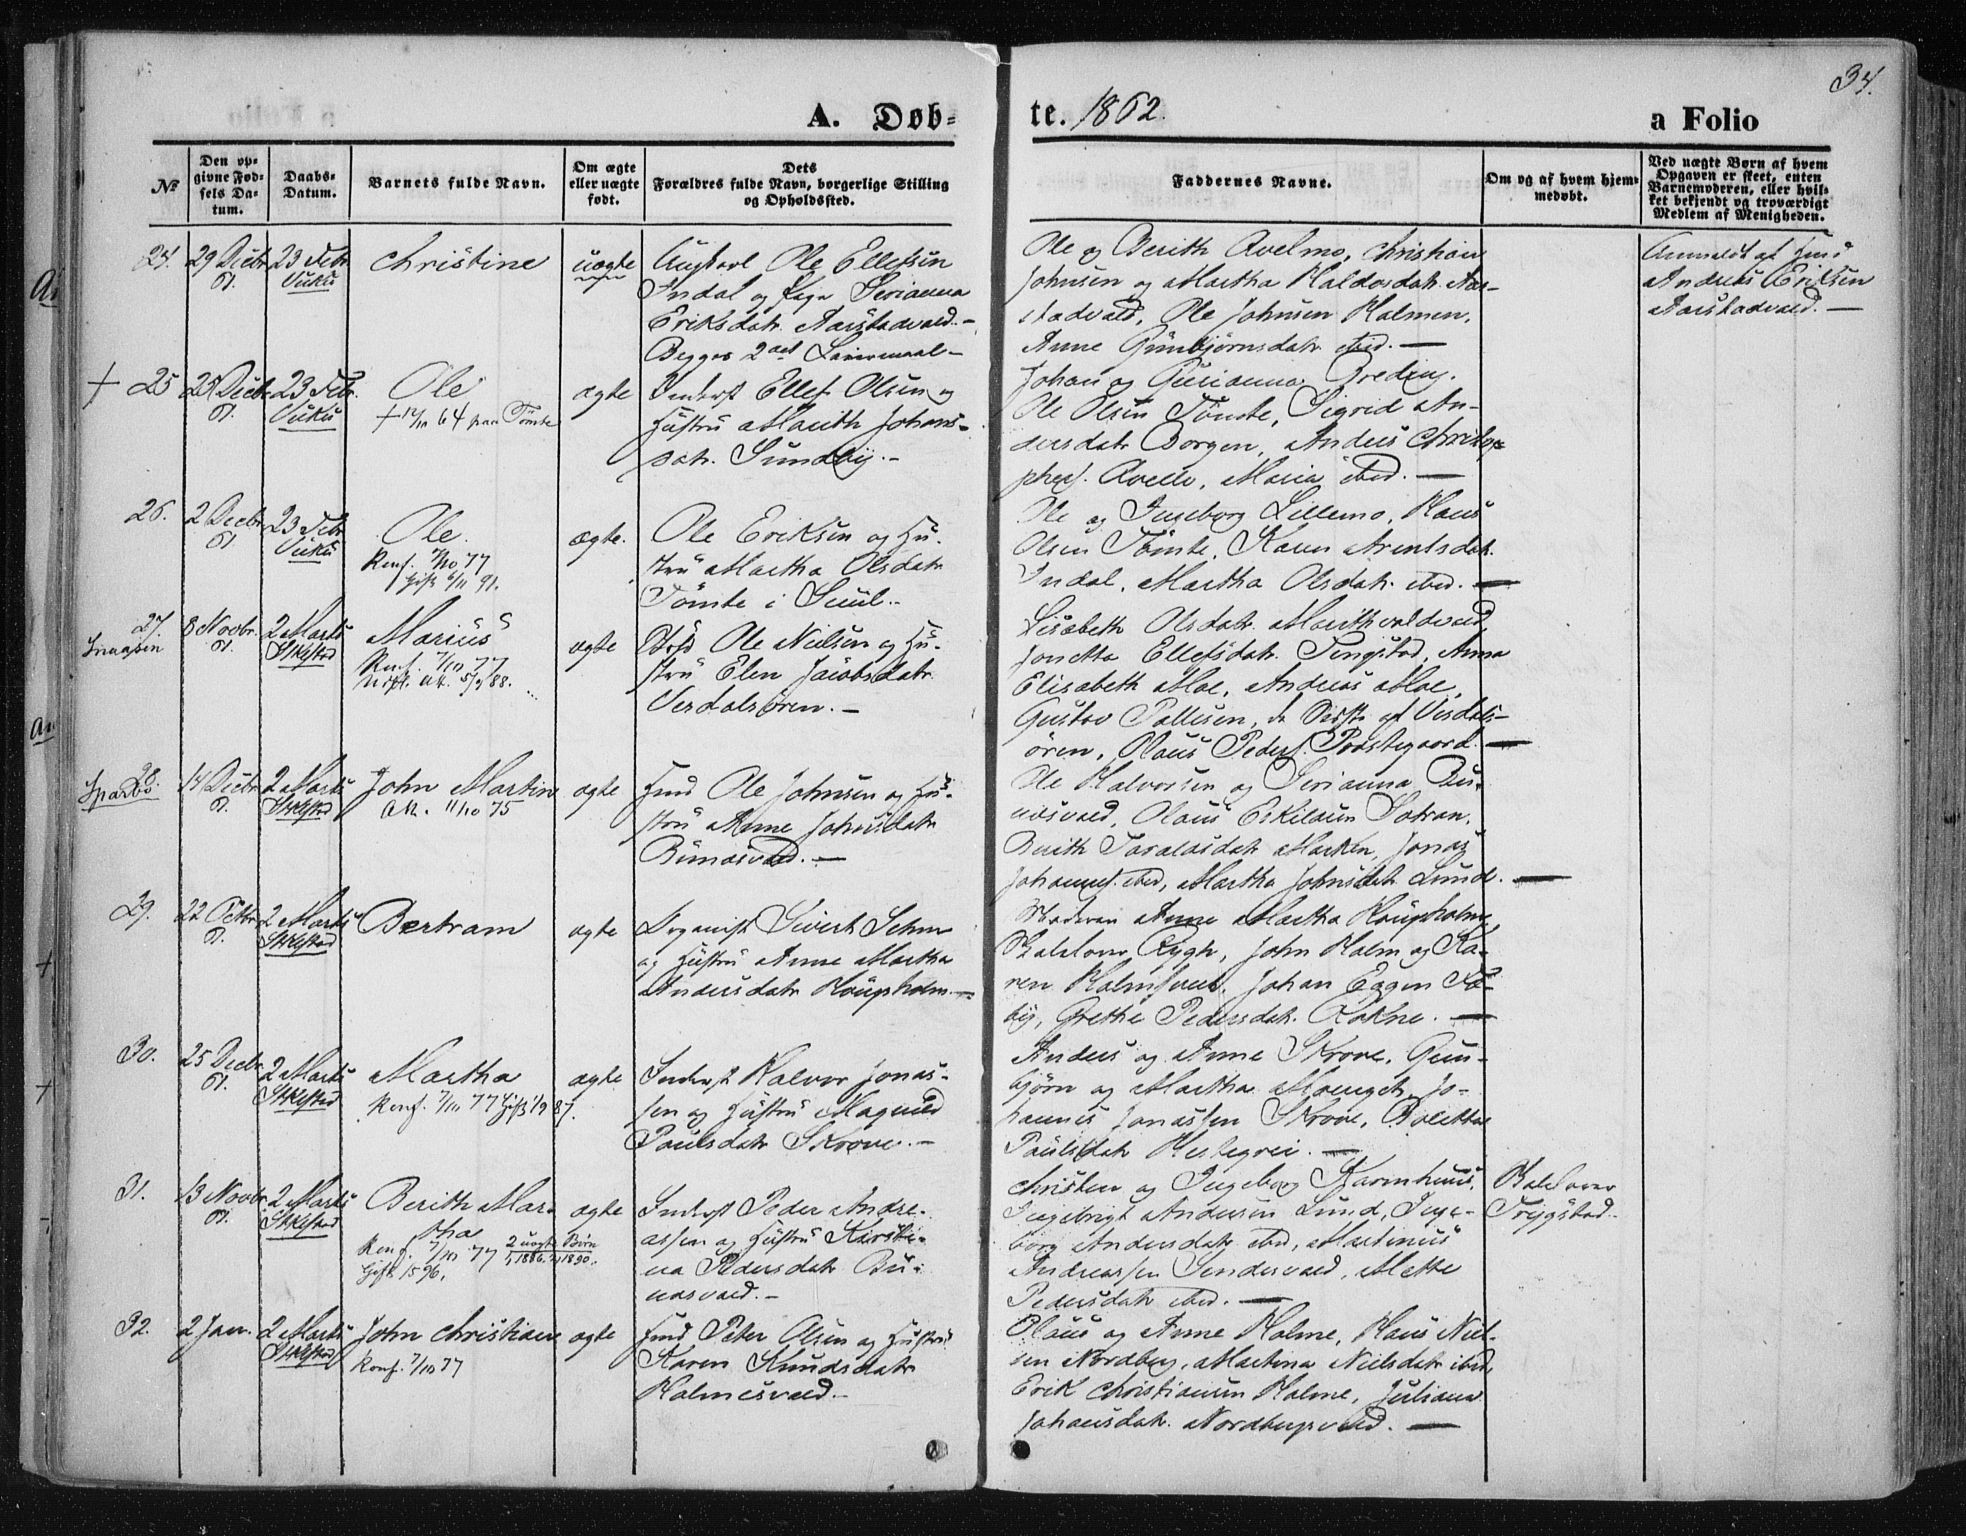 34.
A. Døb-
te. 1862.
a Folio
№
Den op-
givne Fød-
sels Da-
tum.
Daabs-
Datum.
Barnets fulde Navn.
Om ægte
eller uægte
født.
Dets
Forældres fulde Navn, borgerlige Stilling
og Opholdssted.
Faddernes Navne.
Om og af hvem hjem-
medøbt.
Ved uægte Børn af hvem
Opgaven er skeet, enten
Barnemoderen, eller hvil-
ket bekjendt og troværdigt
Medlem af Menigheden.
24.
29 Decbr
23 Febr
Vuku
Christine
uægte
Ungkarl Ole Ellefsen
Indal og Pige Serianna
Eriksdatr. Aarstadvald.-
Begges 2det Leiermaal-
Ole og Berith Avelmo, Christian
Johnsen og Martha Haldorsdatr. Aar-
stadvald, Ole Johnsen Halmen,
Anne Gunbjørnsdatr ibid.-
Anmeldt af Hmd
Andreas Eriksen
Aarstadvald.-
+ 25
23 Febr.
Vuku
Ole
+ 12/10 64 paa Tømte
ægte
Inderst Ellef Olsen og
Hustru Marith Johans-
datr. Sundby.-
Johan og Gurianna Breding.
Ole Olsen Tømte, Sigrid An-
dersdatr Borgen, Anders Christo-
phers. Avelle, Maria ibid.-
26.
2 Decbr
23 Febr
Vuku
Ole
Konf. 7/10 77
Gift 6/11 91.
ægte.
Ole Eriksen og Hu-
stru Martha Olsdatr
Tømte i Suul.-
Ole og Ingeborg Lillemo, Hans
Olsen Tømte, Karen Arntsdatr.
Indal, Martha Olsdatr. ibid.-
27.
8 Novbr.
2 Marts
Stklstad
Marius
Konf. 7/10 77
ægte
Ole Nielsen og Hu-
stru Elen Jacobsdatr
Verdalsøren.-
Lisabeth Olsdatr. Marithvoldvald,
Jonetta Ellefsdatr. Tingstad, Anna
Elisabeth Moe, Andreas Moe,
Gustav Pallesen, de sidste af Verdals-
øren, Olaus Peders. Præstegaard.-
28.
Sparbo.
14 Decbr
2 Marts
Stklstad
John Martin
Att. 11/10 75
ægte
Hmd Ole Johnsen og Hu-
stru Anne Johnsdatr
Bunæsvald.-
Ole Halvorsen og Serianna Bu-
næsvald, Olaus Eskilsen Sotran,
Berith Taraldsdatr Marken, Jonas
Johannes. ibid, Martha Johnsdatr Lund.-
29.
22 Octbr
2 Marts
Stklstad
Bertram
ægte
Organist Sivert Sehm
og Hustru Anne Martha
Andersdatr Hougsholm.-
Moderen Anne Martha Hougsholm,
Rygh, John Holm og Ka-
ren Holmsveet, Johan Eggen Fæ-
by, Grethe Pedersdatr. Rokne.-
30.
25 Decbr
2 Marts
Stklstad
Martha
Konf. 7/10 77 Gift 1/9 87.
ægte
Inderst Halvor Jonas-
sen og Hustru Magnild
Paulsdatr Skrove.-
Anders og Anne Skrove, Gun-
bjørn og Martha Mønget, Jo-
hannes Jonassen Skrove, Boletta
Paulsdatr Hestegrei.-
31.
13 Novbr
2 Marts
Stklstad
Berith Mar-
tha
Konf. 7/10 77
Gift 1896.
2 uægte Børn
1, 1886. 2, 1890.
ægte
Inderst Peder Andre-
assen og Hustru Kirsti-
na Pedersdatr Bu-
næsvald.-
Christen og Ingeborg Kornhuus,
Ingebrigt Andersen Lund, Inge-
borg Andersdatr ibid, Martinus
Andreassen Sendersvald, Mette
Pedersdatr ibid.-
Trygstad.
32.
2 Jan.
2 Marts
Stklstad
John Christian
Konf. 7/10 77
ægte
Hmd Peter Olsen og Hustru
Karen Knudsdatr
Holmesvald.-
Olaus og Anne Holme, Hans Niel-
sen Nordberg, Martina Nielsdatr ibid,
Erik Christiansen Holme, Juliana
Johansdatr. Nordbergsvald.-